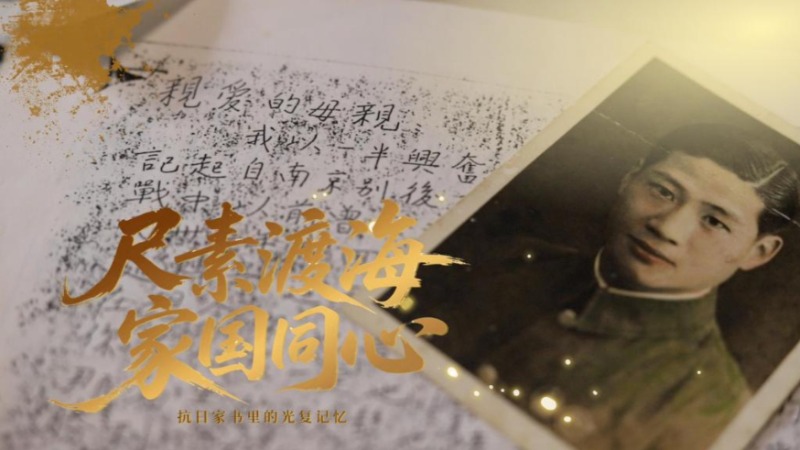 親愛的母親
我以一半興奮
記起自南京別後
尺素渡海
家国同心
抗日家书里的光复记忆